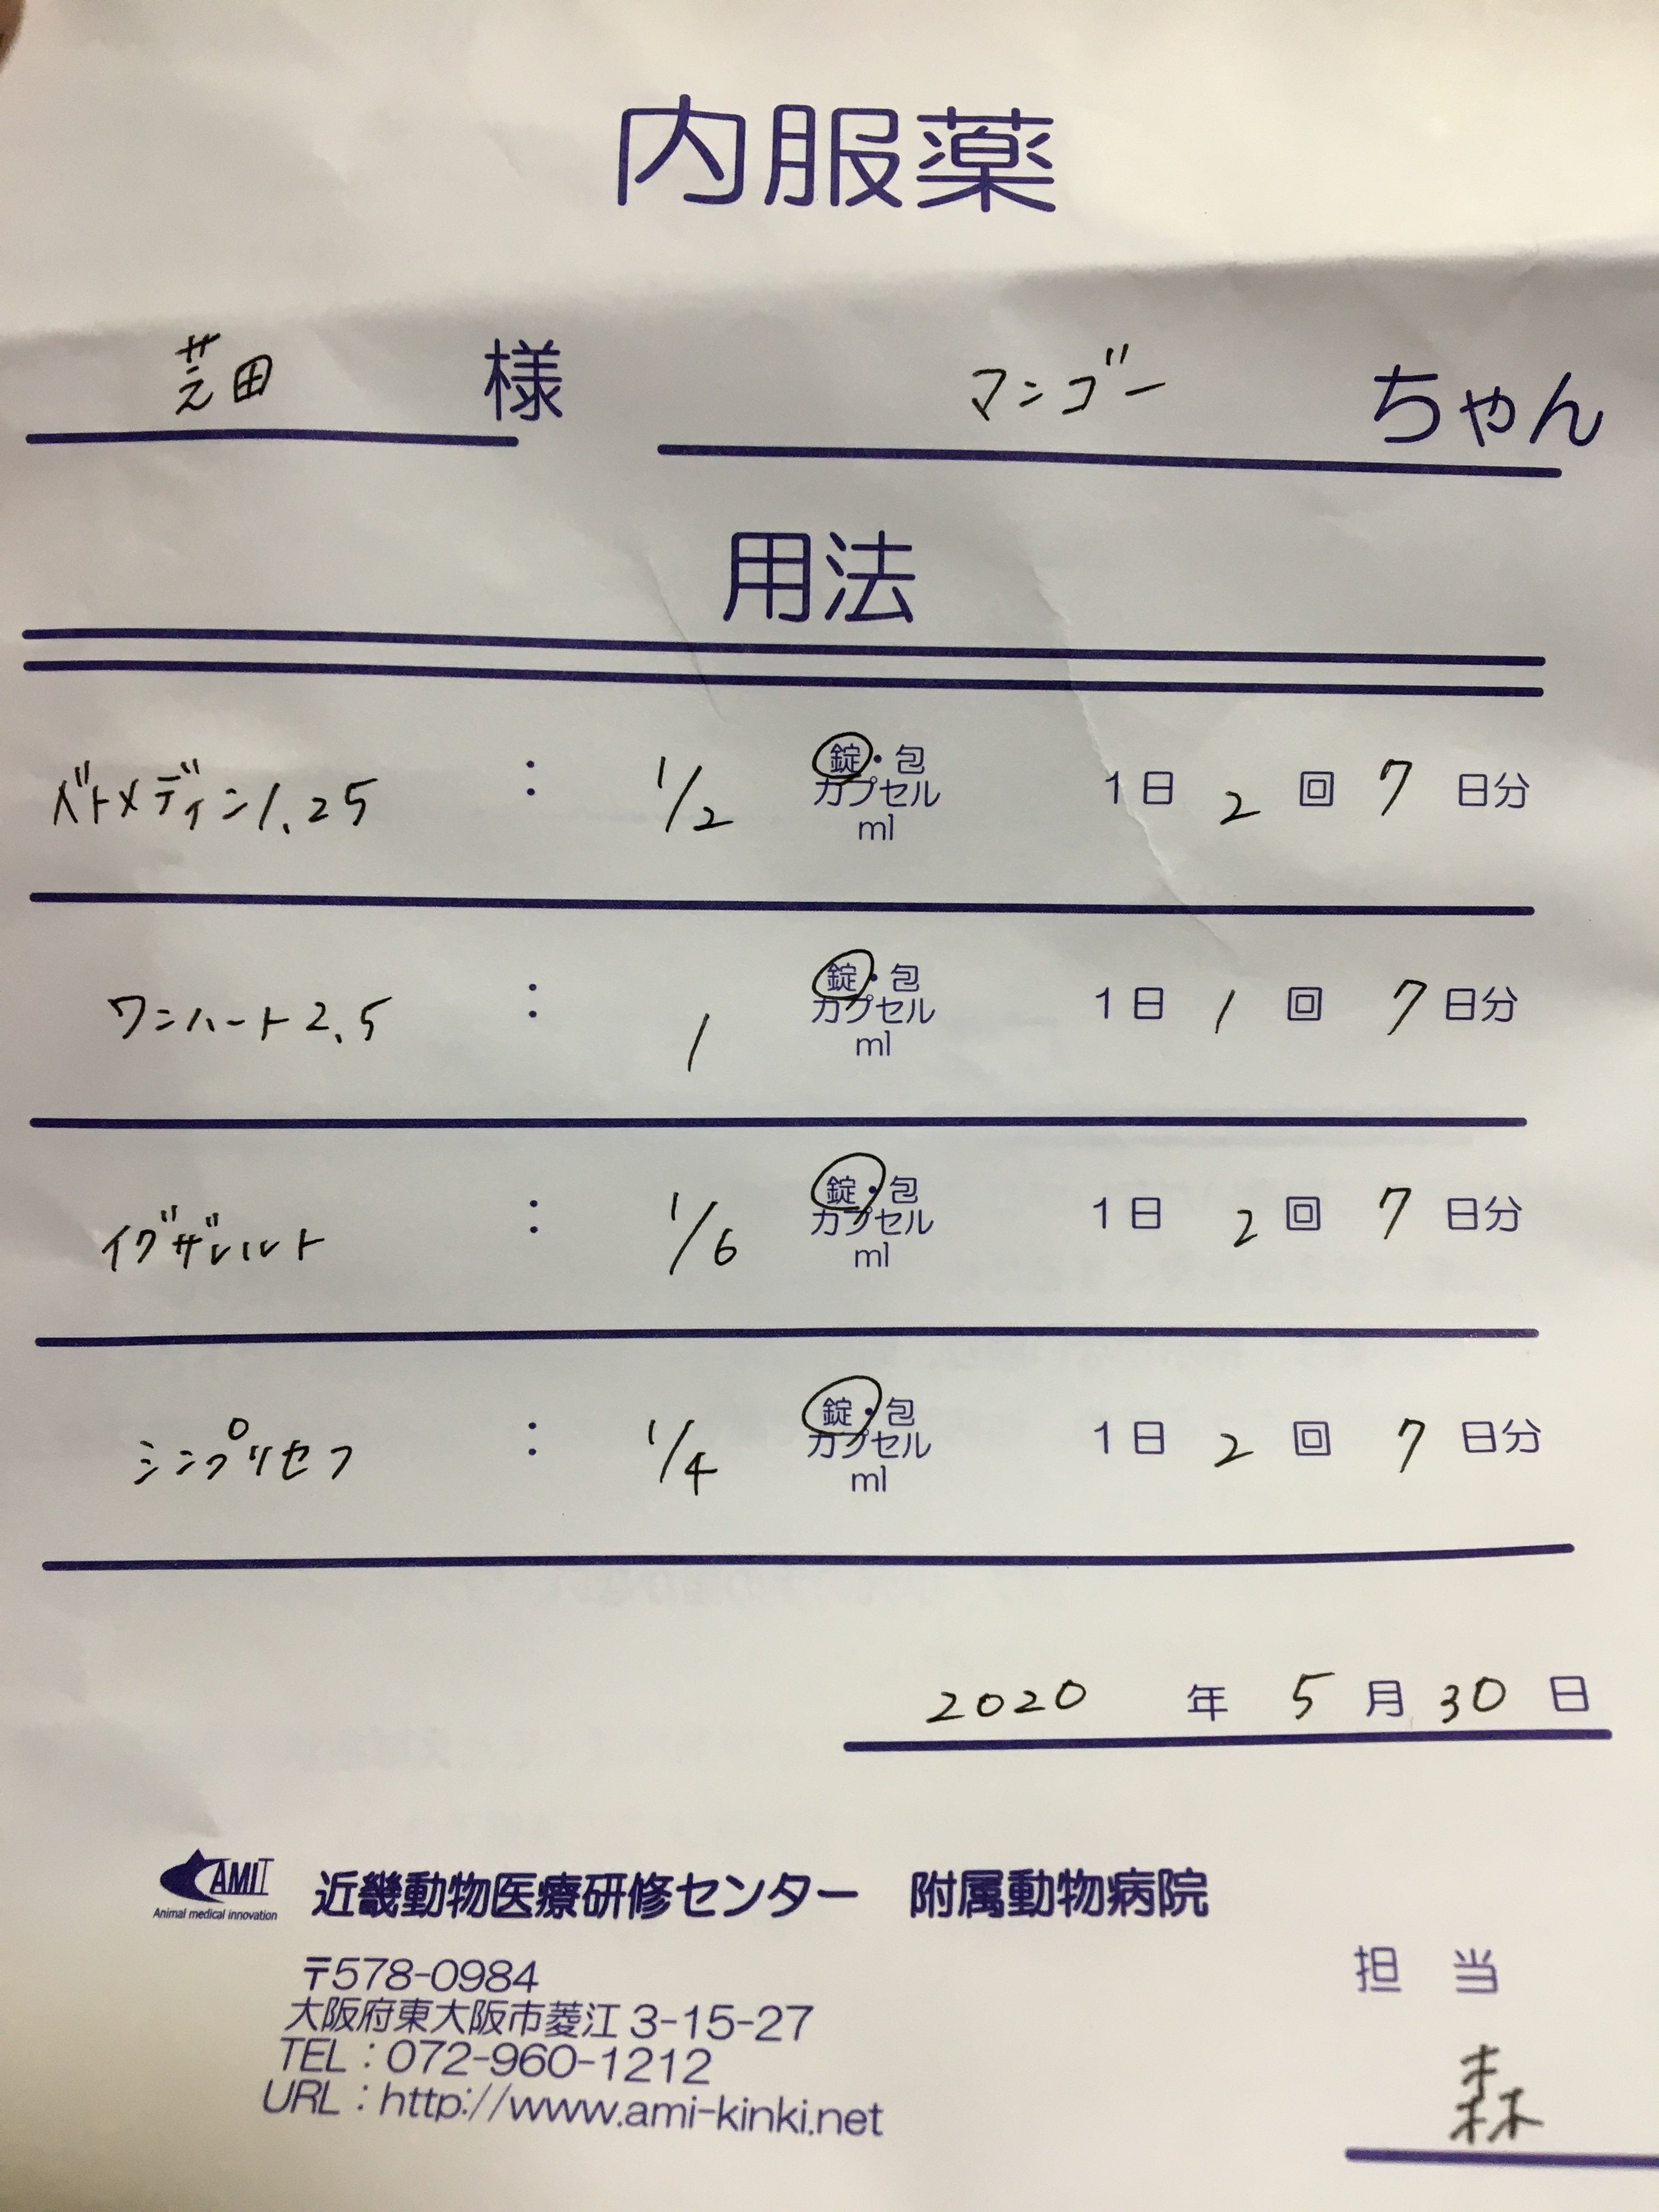 内服薬
芝田 様 マンゴー ちゃん
用法
ベトメディン1.25 : 1/2 錠・包 カプセル ml 1日 2 回 7 日分
ワンハート2.5 : 1 錠・包 カプセル ml 1日 1 回 7 日分
イグザレルト : 1/6 錠・包 カプセル ml 1日 2 回 7 日分
シンプリセフ : 1/4 錠・包 カプセル ml 1日 2 回 7 日分
2020 年 5 月 30 日
AMIT
Animal medical innovation
近畿動物医療研修センター 附属動物病院
〒578-0984
大阪府東大阪市菱江 3-15-27
TEL：072-960-1212
URL：http://www.ami-kinki.net
担当
森